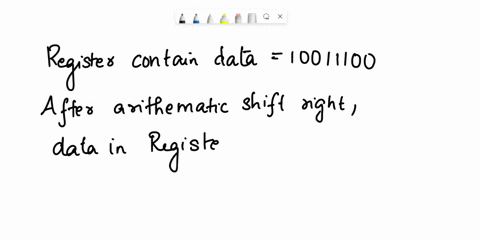 Register contain data = 10011100
After arithematic shift right,
data in Registe